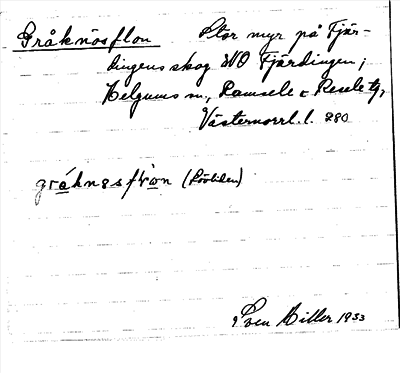 Gråknösflon Stor myr på Fjär-
dingens skog NO Fjärdingen;
Helgums sn, Ramsele o Resele tg,
Västernorrl. l. 280
gråknesflon
Sven Hiller 1933